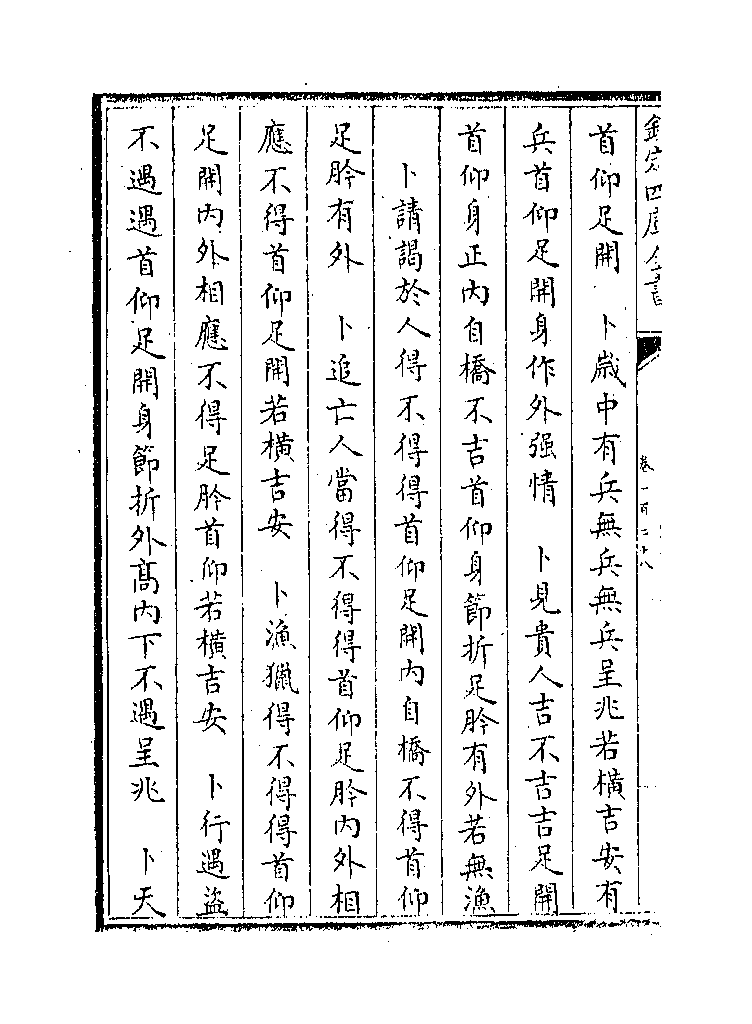 欽定四庫全書
卷一百二十八
首仰足開　卜嵗中有兵無兵無兵呈兆若橫吉安有
兵首仰足開身作外强情　卜見貴人吉不吉吉足開
首仰身正内自橋不吉首仰身節折足肣有外若無漁
卜請謁於人得不得得首仰足開内自橋不得首仰
足肣有外　卜追亡人當得不得得首仰足肣内外相
應不得首仰足開若橫吉安　卜漁獵得不得得首仰
足開内外相應不得足肣首仰若橫吉安　卜行遇盜
不遇遇首仰足開身節折外髙内下不遇呈兆　卜天